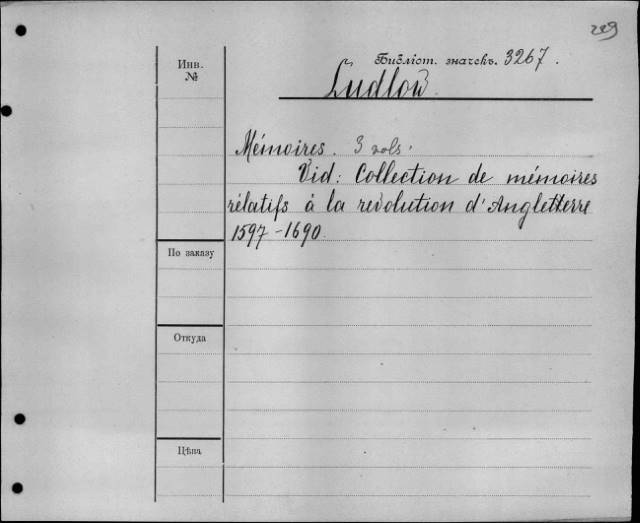 229
Библіот. значекъ. 3267.
Ludlow.
Инв.
№
Mémoires. 3 vols.
Vid: Collection de mémoires
rélatifs à la revolution d'Angletterre
1597-1690.
По заказу
Откуда
Цѣна